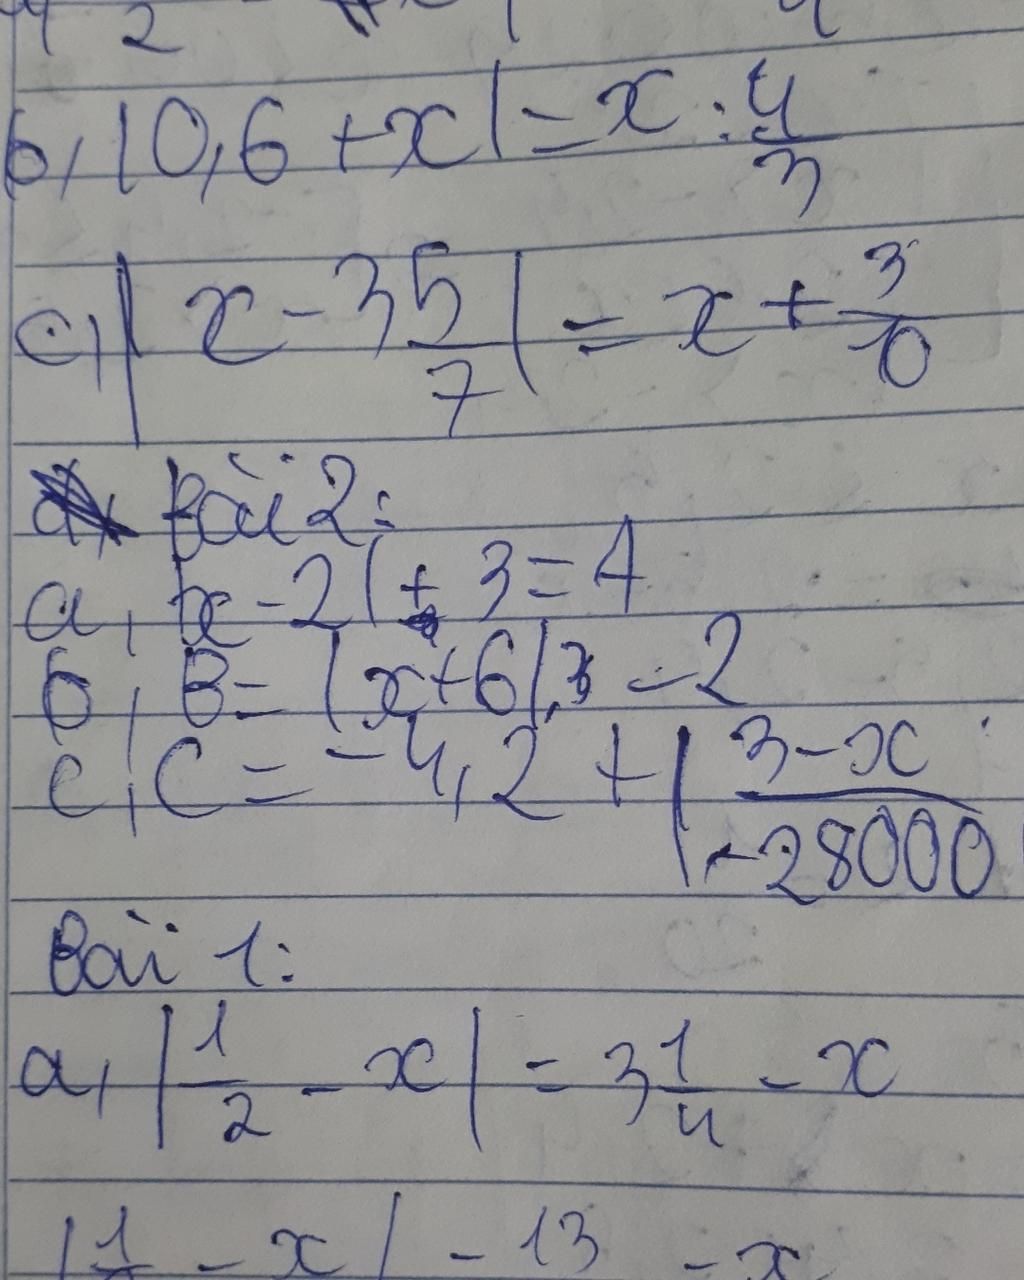 b, |0,6 + x| = x : 4/3
c, |x - 3 5/7| = x + 3/10
Bài 2:
a, x - 2| + 3 = 4
b, B = |x + 6|.3 - 2
c, C = -4,2 + |3 - x/-28000
Bài 1:
a, |1/2 - x| = 3 1/4 - x
|1/2 - x| - 13 - x